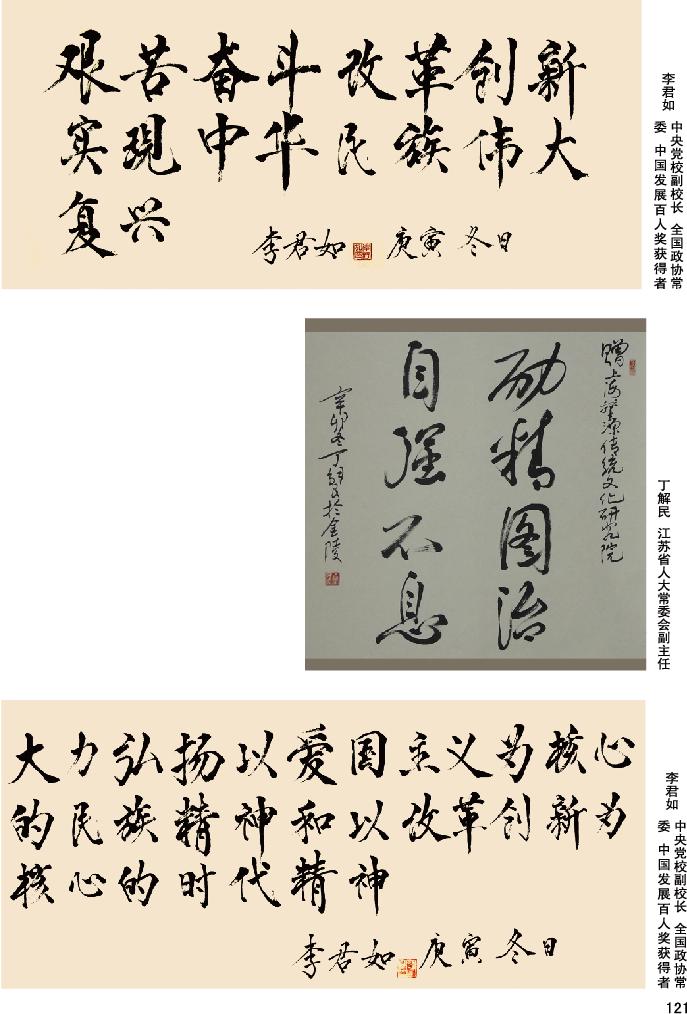 艰苦奋斗改革创新
实现中华民族伟大
复兴
李君如 庚寅 冬日
李君如 中央党校副校长 全国政协常
委 中国发展百人奖获得者
赠上海
传统文化研究院
励精图治
自强不息
辛卯冬丁解民于金陵
丁解民 江苏省人大常委会副主任
大力弘扬以爱国主义为核心
的民族精神和以改革创新为
核心的时代精神
李君如 庚寅 冬日
李君如 中央党校副校长 全国政协常
委 中国发展百人奖获得者
121